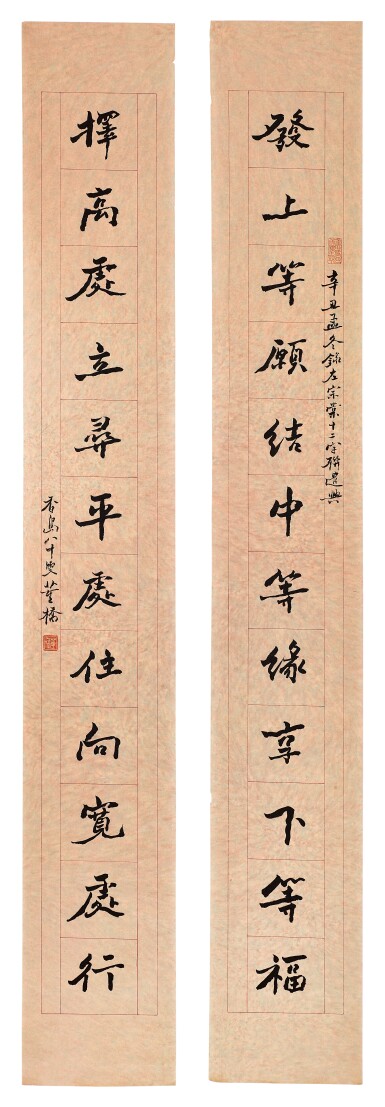 發上等願結中等緣享下等福
辛丑孟冬錄左宗棠十二字聯遣興
擇高處立尋平處住向寬處行
香島八十叟董橋